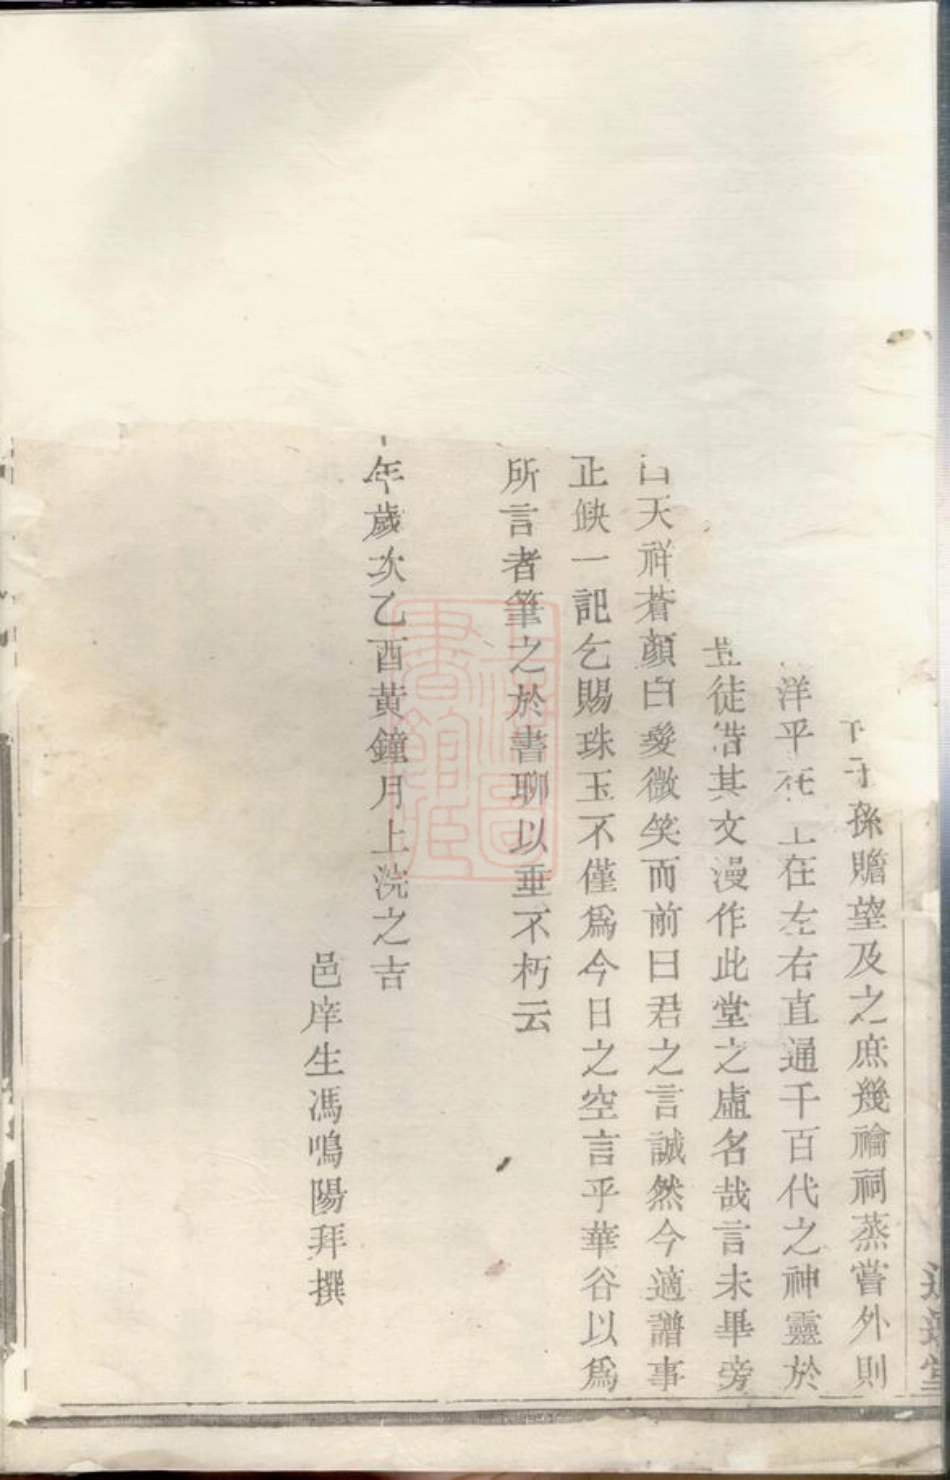 子孫瞻望及之庶幾禴祠蒸嘗外則
洋乎在上在左右直通千百代之神靈於
豈徒借其文漫作此堂之虛名哉言未畢旁
天祥蒼顏白髮微笑而前曰君之言誠然今適譜事
正缺一記乞賜珠玉不僅爲今日之空言乎華谷以爲
所言者筆之於書聊以垂不朽云
年歲次乙酉黃鐘月上浣之吉
邑庠生馮鳴陽拜撰